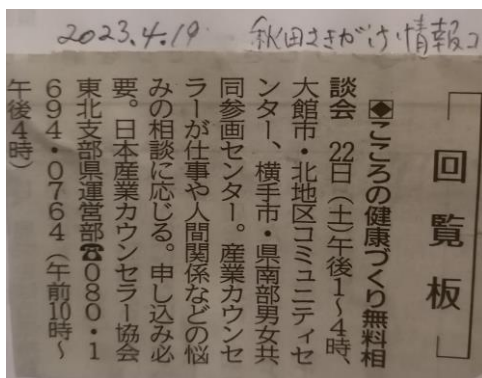 2023.4.19 秋田さきがけ情報コ
「回覧板」
◆こころの健康づくり無料相
談会 22日(土)午後1〜4時、
大館市・北地区コミュニティセ
ンター、横手市・県南部男女共
同参画センター。産業カウンセ
ラーが仕事や人間関係などの悩
みの相談に応じる。申し込み必
要。日本産業カウンセラー協会
東北支部県運営部☎080・1
694・0764(午前10時〜
午後4時)